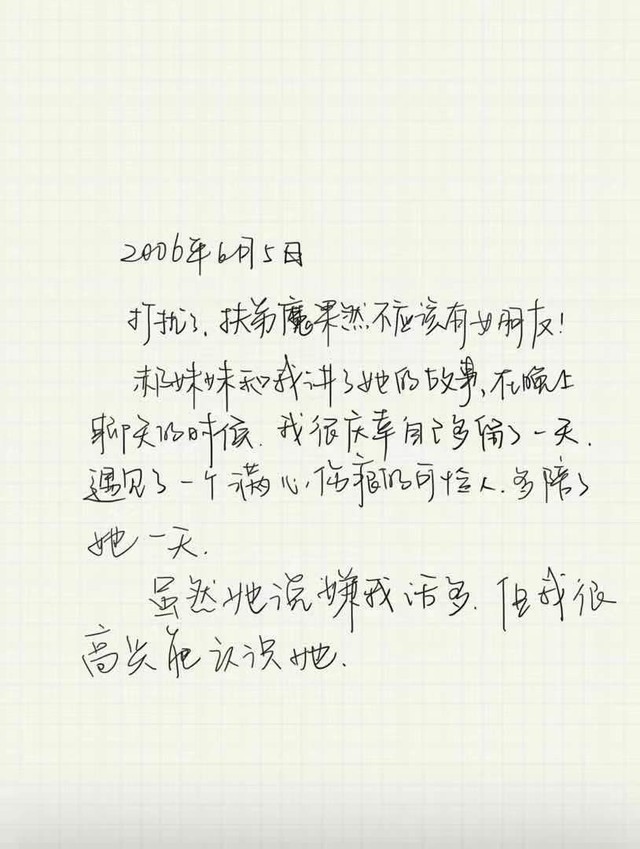 2006年6月5日
打扰了、扶弟魔果然不应该有女朋友!
郝妹妹和我讲了她的故事、在晚上
聊天的时候.我很庆幸自己多留了一天.
遇见了一个满心伤痕的可怜人.多陪了
她一天.
虽然她说嫌我话多.但我很
高兴能认识她.